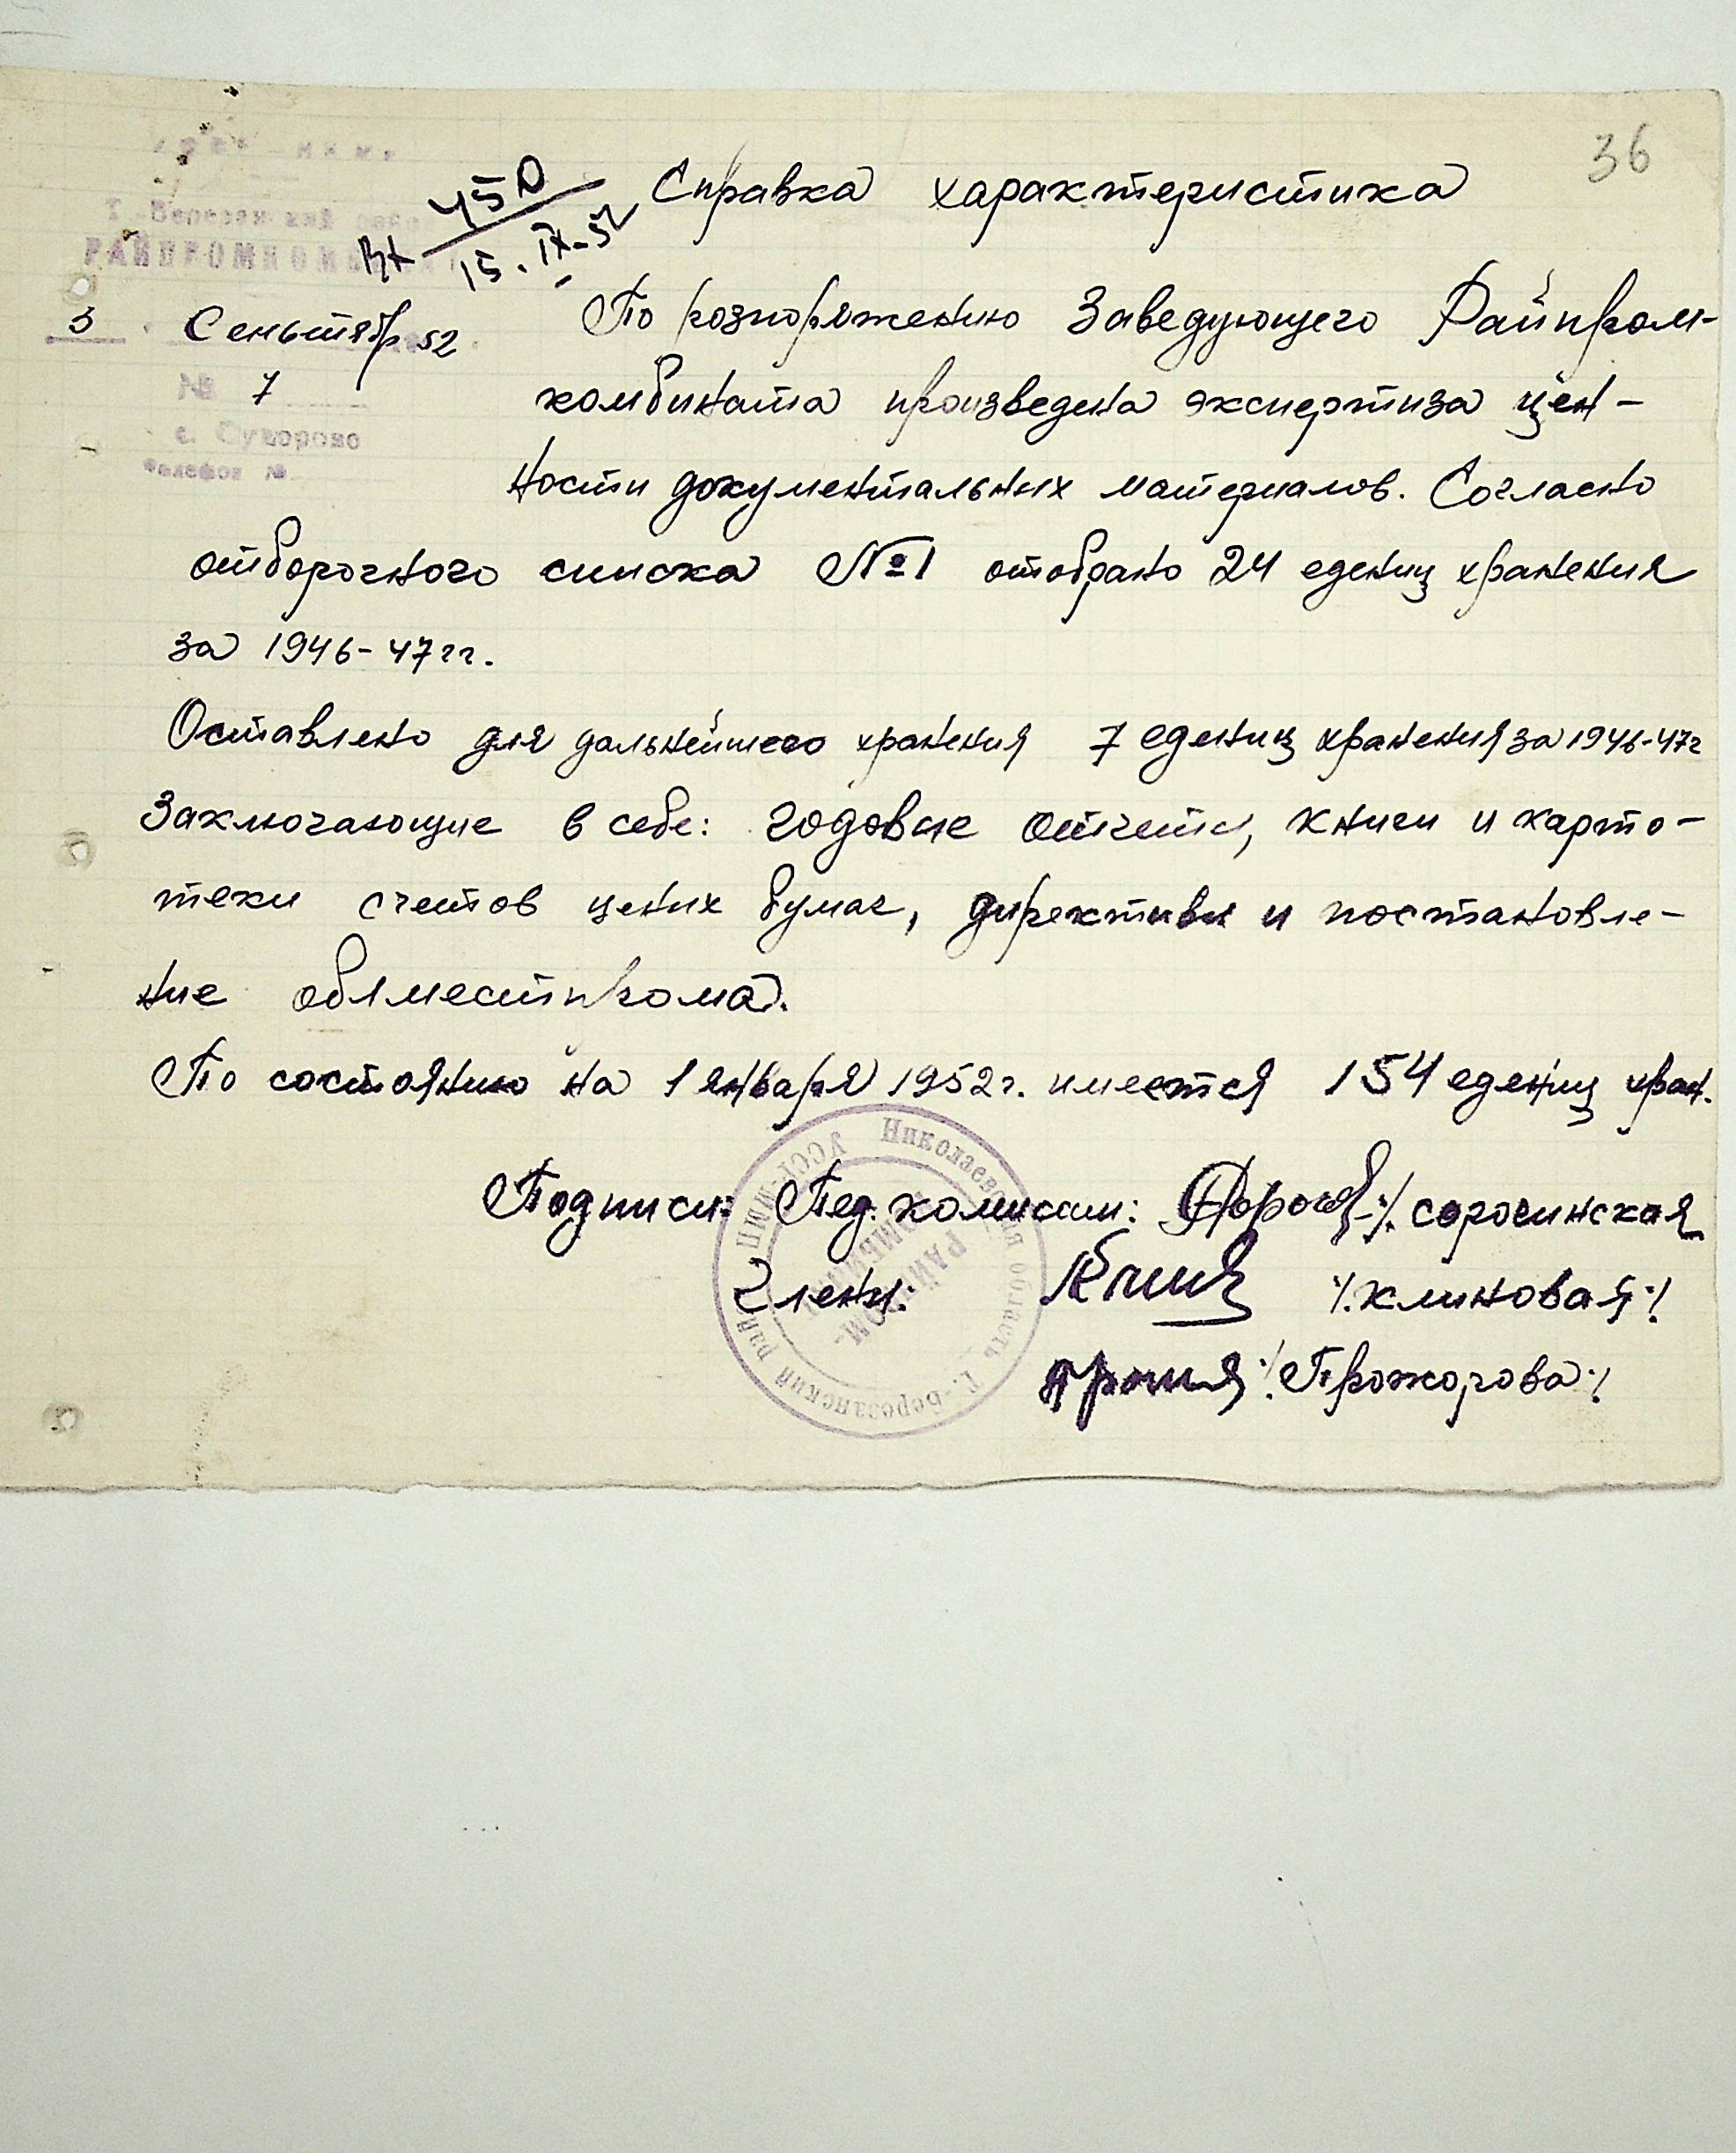 36
Справка характеристика
450
Вх 15.IX-52
Т. Березанский
РАЙПРОМКОМБИНАТ
3 Сеньтябр 52
№ 7
с. Суворово
телефон №
По розпоряжению Заведующего Райпром-
комбината произведена экспертиза цен-
ности документальных материалов. Согласно
отборочного списка №1 отобрано 24 едениц хранения
за 1946-47 гг.
Оставлено для дальнейшего хранения 7 едениц хранения за 1946-47г
Заключающие в себе: годовые отчеты, книги и карто-
теки счетов ценых бумаг, директивы и постановле-
ние облместпрома.
По состоянию на 1 января 1952г. имеется 154 едениц хран.
Подписи: Пед. комисии: /. сорочинская
Члены: /. климовая ./
/. Прожорова ./
УССР-ММП Николаевская область Т.-Березанский рай
РАЙПРОМ-
КОМБИНАТ